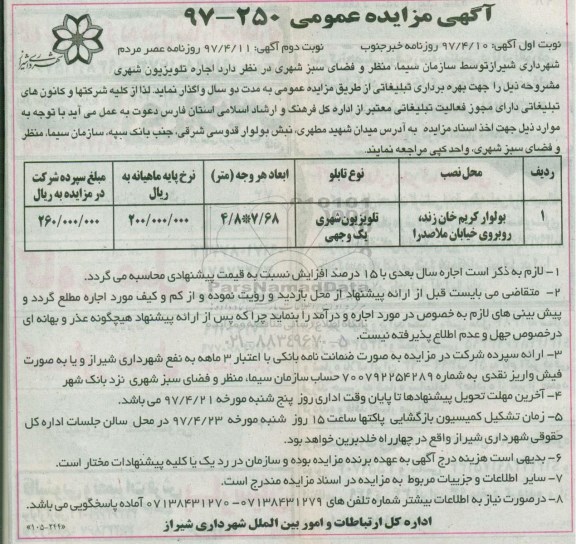 آگهی مزایده عمومی ۲۵۰-۹۷
نوبت اول آگهی: ۹۷/۴/۱۰ روزنامه خبرجنوب نوبت دوم آگهی: ۹۷/۴/۱۱ روزنامه عصر مردم
شهرداری شیراز
شهرداری شیرازتوسط سازمان سیما، منظر و فضای سبز شهری در نظر دارد اجاره تلویزیون شهری
مشروحه ذیل را جهت بهره برداری تبلیغاتی از طریق مزایده عمومی به مدت دو سال واگذار نماید. لذا از کلیه شرکتها و کانون های
تبلیغاتی دارای مجوز فعالیت تبلیغاتی معتبر از اداره کل فرهنگ و ارشاد اسلامی استان فارس دعوت به عمل می آید با توجه به
موارد ذیل جهت اخذ اسناد مزایده به آدرس میدان شهید مطهری، نبش بولوار قدوسی شرقی، جنب بانک سپه، سازمان سیما، منظر
و فضای سبز شهری، واحد کپی مراجعه نمایند.
ردیف محل نصب نوع تابلو ابعاد هر وجه (متر) نرخ پایه ماهیانه به ریال مبلغ سپرده شرکت در مزایده به ریال
۱ بولوار کریم خان زند، روبروی خیابان ملاصدرا تلویزیون شهری یک وجهی ۴/۸*۷/۶۸ ۲۰۰/۰۰۰/۰۰۰ ۲۶۰/۰۰۰/۰۰۰
۱- لازم به ذکر است اجاره سال بعدی با ۱۵ درصد افزایش نسبت به قیمت پیشنهادی محاسبه می گردد.
۲- متقاضی می بایست قبل از ارائه پیشنهاد از محل بازدید و رویت نموده و از کم و کیف مورد اجاره مطلع گردد و
پیش بینی های لازم به خصوص در مورد اجاره و درآمد را بنماید چرا که پس از ارائه پیشنهاد هیچگونه عذر و بهانه ای
درخصوص جهل و عدم اطلاع پذیرفته نیست.
۳- ارائه سپرده شرکت در مزایده به صورت ضمانت نامه بانکی با اعتبار ۳ ماهه به نفع شهرداری شیراز و یا به صورت
فیش واریز نقدی به شماره ۷۰۰۷۹۲۲۵۴۲۸۹ حساب سازمان سیما، منظر و فضای سبز شهری نزد بانک شهر
۴- آخرین مهلت تحویل پیشنهادها تا پایان وقت اداری روز پنج شنبه مورخه ۹۷/۴/۲۱ می باشد.
۵- زمان تشکیل کمیسیون بازگشایی پاکتها ساعت ۱۵ روز شنبه مورخه ۹۷/۴/۲۳ در محل سالن جلسات اداره کل
حقوقی شهرداری شیراز واقع در چهارراه خلدبرین خواهد بود.
۶- بدیهی است هزینه درج آگهی به عهده برنده مزایده بوده و سازمان در رد یک یا کلیه پیشنهادات مختار است.
۷- سایر اطلاعات و جزییات مربوط به مزایده در اسناد مزایده مندرج است.
۸- درصورت نیاز به اطلاعات بیشتر شماره تلفن های ۰۷۱۳۸۴۳۱۲۷۹ -۰۷۱۳۸۴۳۱۲۷۰ آماده پاسخگویی می باشد.
اداره کل ارتباطات و امور بین الملل شهرداری شیراز
«۱۰۵-۲۹۹»
ParsNamadData
۰۲۱-۸۸۳۴۹۶۷۰-۵